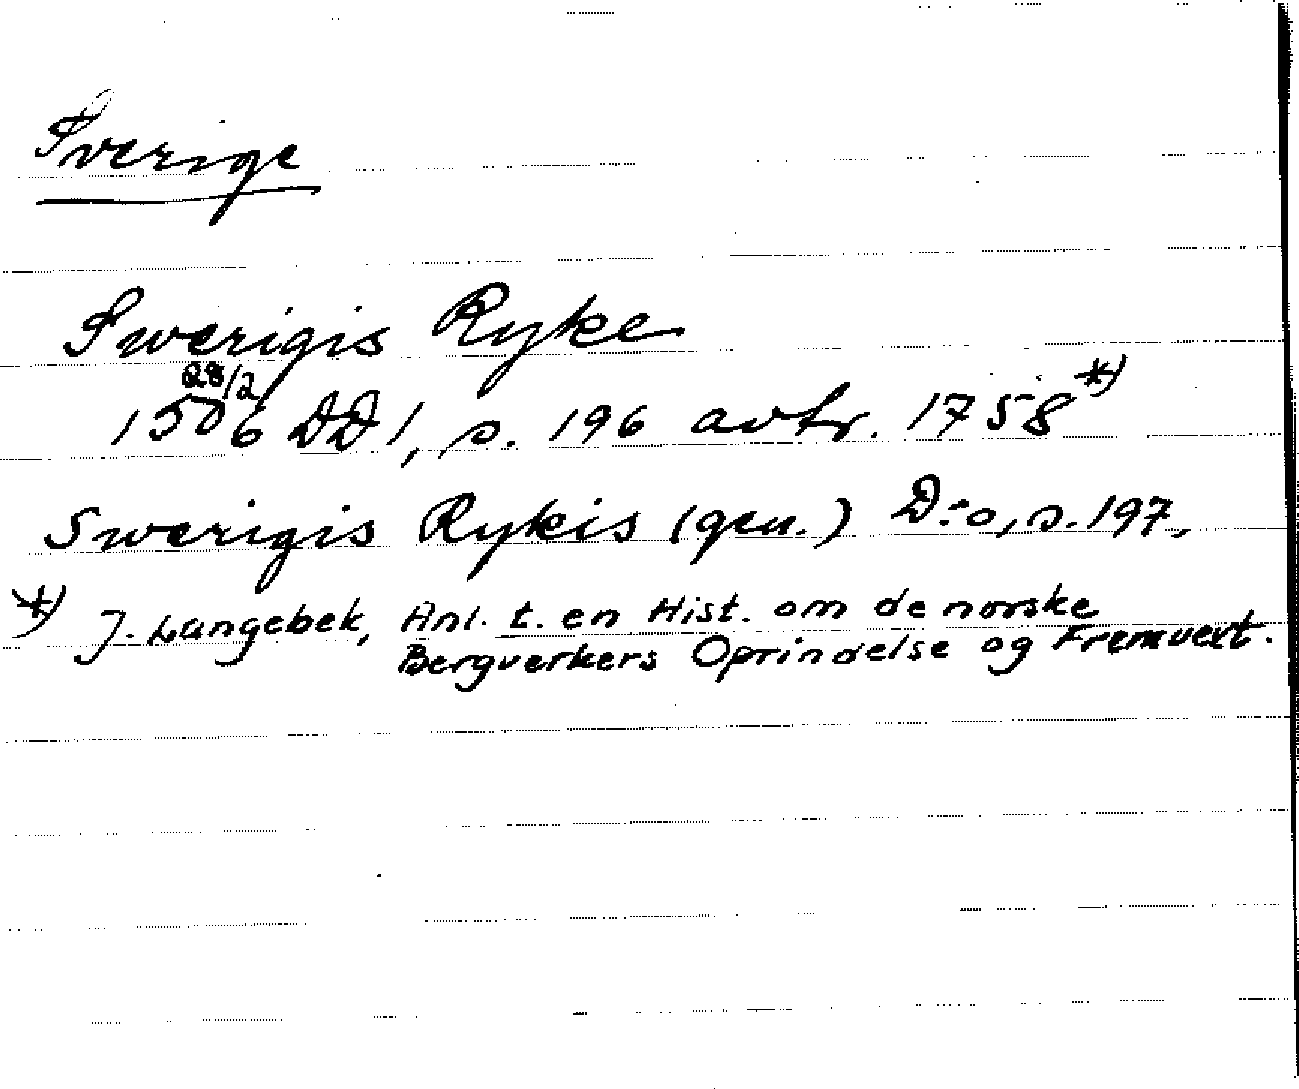 Sverige
Swerigis Ryke
28/2
1506 DD 1, s. 196 avtr. 1758*)
Swerigis Rykis (gen.) D:o, s. 197.
*) J. Langebek, Anl. t. en Hist. om de norske
Bergverkers Oprindelse og Fremvext.